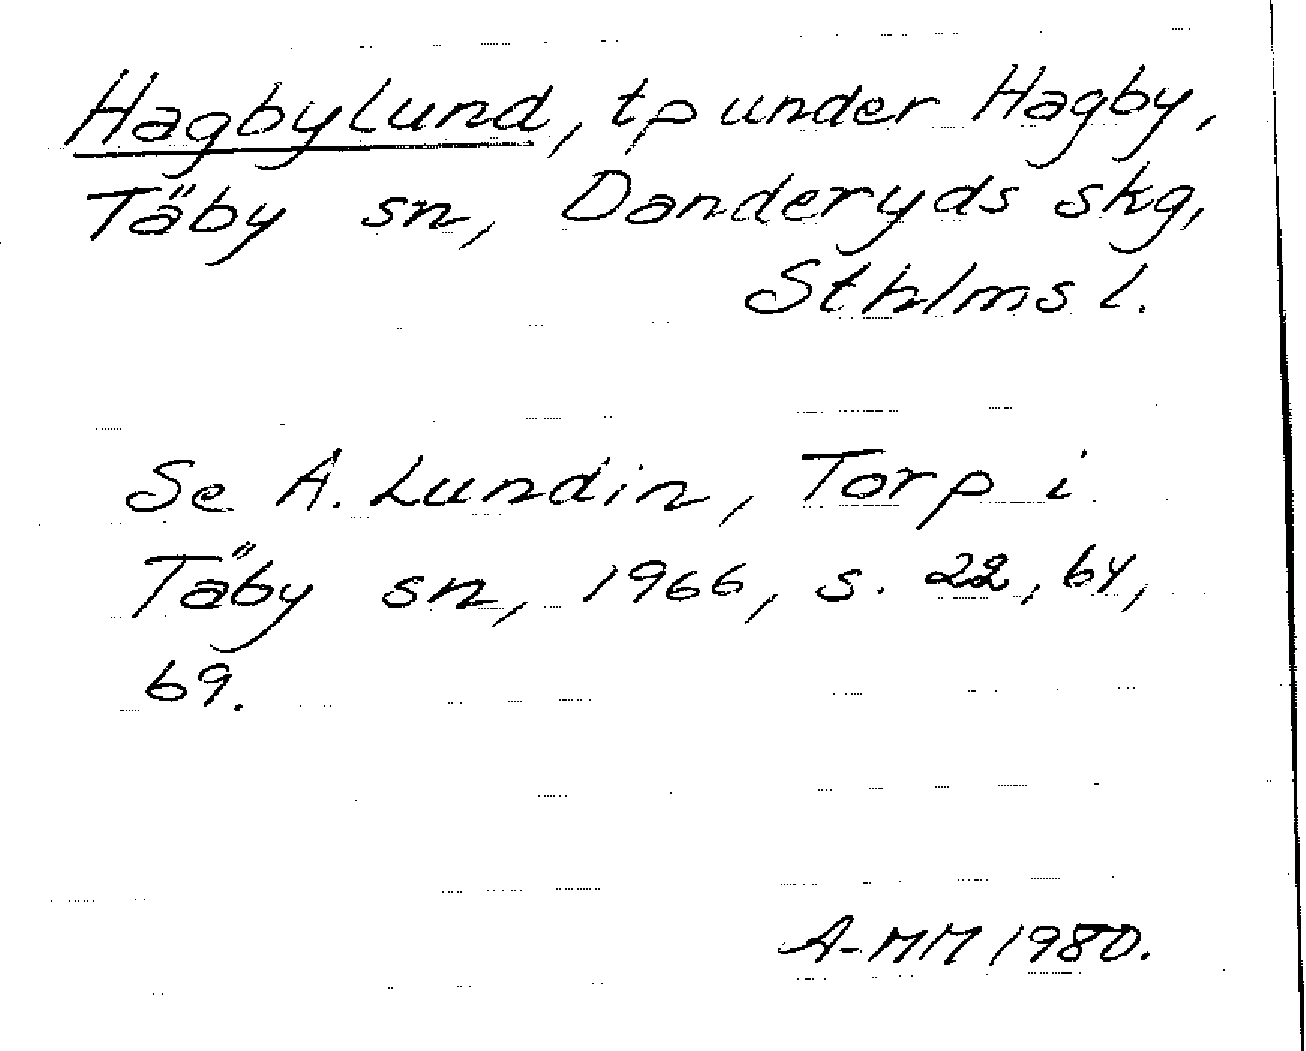 Hagbylund, tp under Hagby,
Täby sn, Danderyds skg,
Sthlms l.
Se A. Lundin, Torp i
Täby sn, 1966, s. 22, 64,
69.
A-MM 1980.